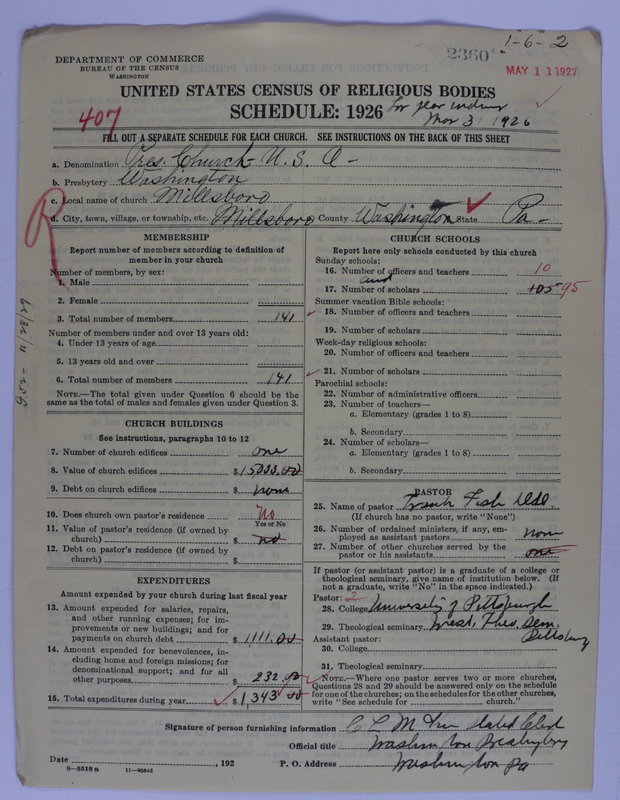 1-6-2
2360
MAY 11 1927
DEPARTMENT OF COMMERCE
BUREAU OF THE CENSUS
WASHINGTON
UNITED STATES CENSUS OF RELIGIOUS BODIES
SCHEDULE: 1926 for year ending
Mar 31 1926
407
FILL OUT A SEPARATE SCHEDULE FOR EACH CHURCH. SEE INSTRUCTIONS ON THE BACK OF THIS SHEET
a. Denomination Pres. Church U. S. A -
b. Presbytery Washington
c. Local name of church Millsboro
d. City, town, village, or township, etc. Millsboro County Washington State Pa -
R
MEMBERSHIP
Report number of members according to definition of
member in your church
Number of members, by sex:
1. Male
2. Female
3. Total number of members 141
Number of members under and over 13 years old:
4. Under 13 years of age
5. 13 years old and over
6. Total number of members 141
NOTE.—The total given under Question 6 should be
same as the total of males and females given under Question 3.
CHURCH BUILDINGS
See instructions, paragraphs 10 to 12
7. Number of church edifices one
8. Value of church edifices $15000.00
9. Debt on church edifices $ none
10. Does church own pastor's residence No
Yes or No
11. Value of pastor's residence (if owned by
church) $ no
12. Debt on pastor's residence (if owned by
church) $
EXPENDITURES
Amount expended by your church during last fiscal year
13. Amount expended for salaries, repairs,
and other running expenses; for im-
provements or new buildings; and for
payments on church debt $1,111.00
14. Amount expended for benevolences, in-
cluding home and foreign missions; for
denominational support; and for all
other purposes $ 232.00
15. Total expenditures during year $1,343 00
CHURCH SCHOOLS
Report here only schools conducted by this church
Sunday schools:
16. Number of officers and teachers 10
and
17. Number of scholars 105 95
Summer vacation Bible schools:
18. Number of officers and teachers
19. Number of scholars
Week-day religious schools:
20. Number of officers and teachers
21. Number of scholars
Parochial schools:
22. Number of administrative officers
23. Number of teachers—
a. Elementary (grades 1 to 8)
b. Secondary
24. Number of scholars—
a. Elementary (grades 1 to 8)
b. Secondary
PASTOR
25. Name of pastor Frank Fish
(If church has no pastor, write "None")
26. Number of ordained ministers, if any, em-
ployed as assistant pastors none
27. Number of other churches served by the
pastor or his assistants one
If pastor (or assistant pastor) is a graduate of a college or
theological seminary, give name of institution below. (If
not a graduate, write "No" in the space indicated.)
Pastor: 2
28. College University of Pittsburgh
29. Theological seminary West. Theo. Sem.
Pittsburg
Assistant pastor:
30. College
31. Theological seminary
NOTE.—Where one pastor serves two or more churches,
Questions 28 and 29 should be answered only on the schedule
for one of the churches; on the schedules for the other churches,
write "See schedule for church."
Signature of person furnishing information C L M Stated Clerk
Official title Washington Presbytery
Date , 192 P. O. Address Washington Pa
8-5518 a